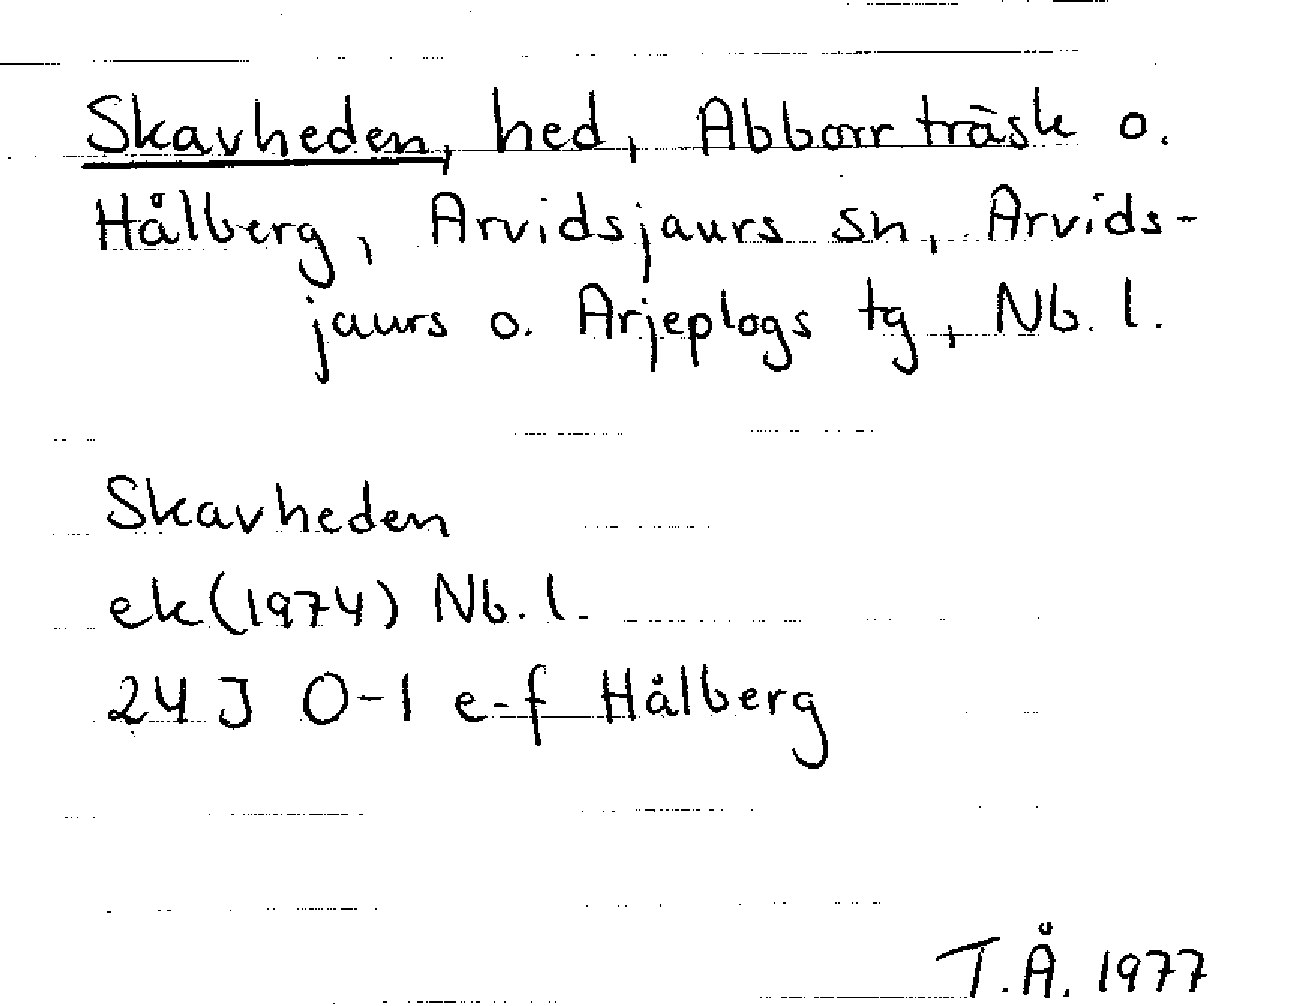 Skavheden, hed, Abborrträsk o.
Hålberg, Arvidsjaurs sn, Arvids-
jaurs o. Arjeplogs tg, Nb. l.
Skavheden
ek (1974) Nb. l.
24 J 0-1 e-f Hålberg
T.Å. 1977